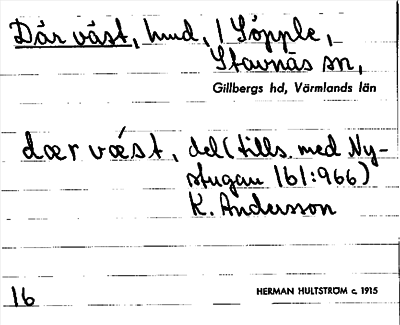 Där väst, hmd, i Söpple,
Stavnäs sn,
Gillbergs hd, Värmlands län
dær væst, del (tills. med Ny-
stugan 161:966)
K. Andersson
16
HERMAN HULTSTRÖM c. 1915